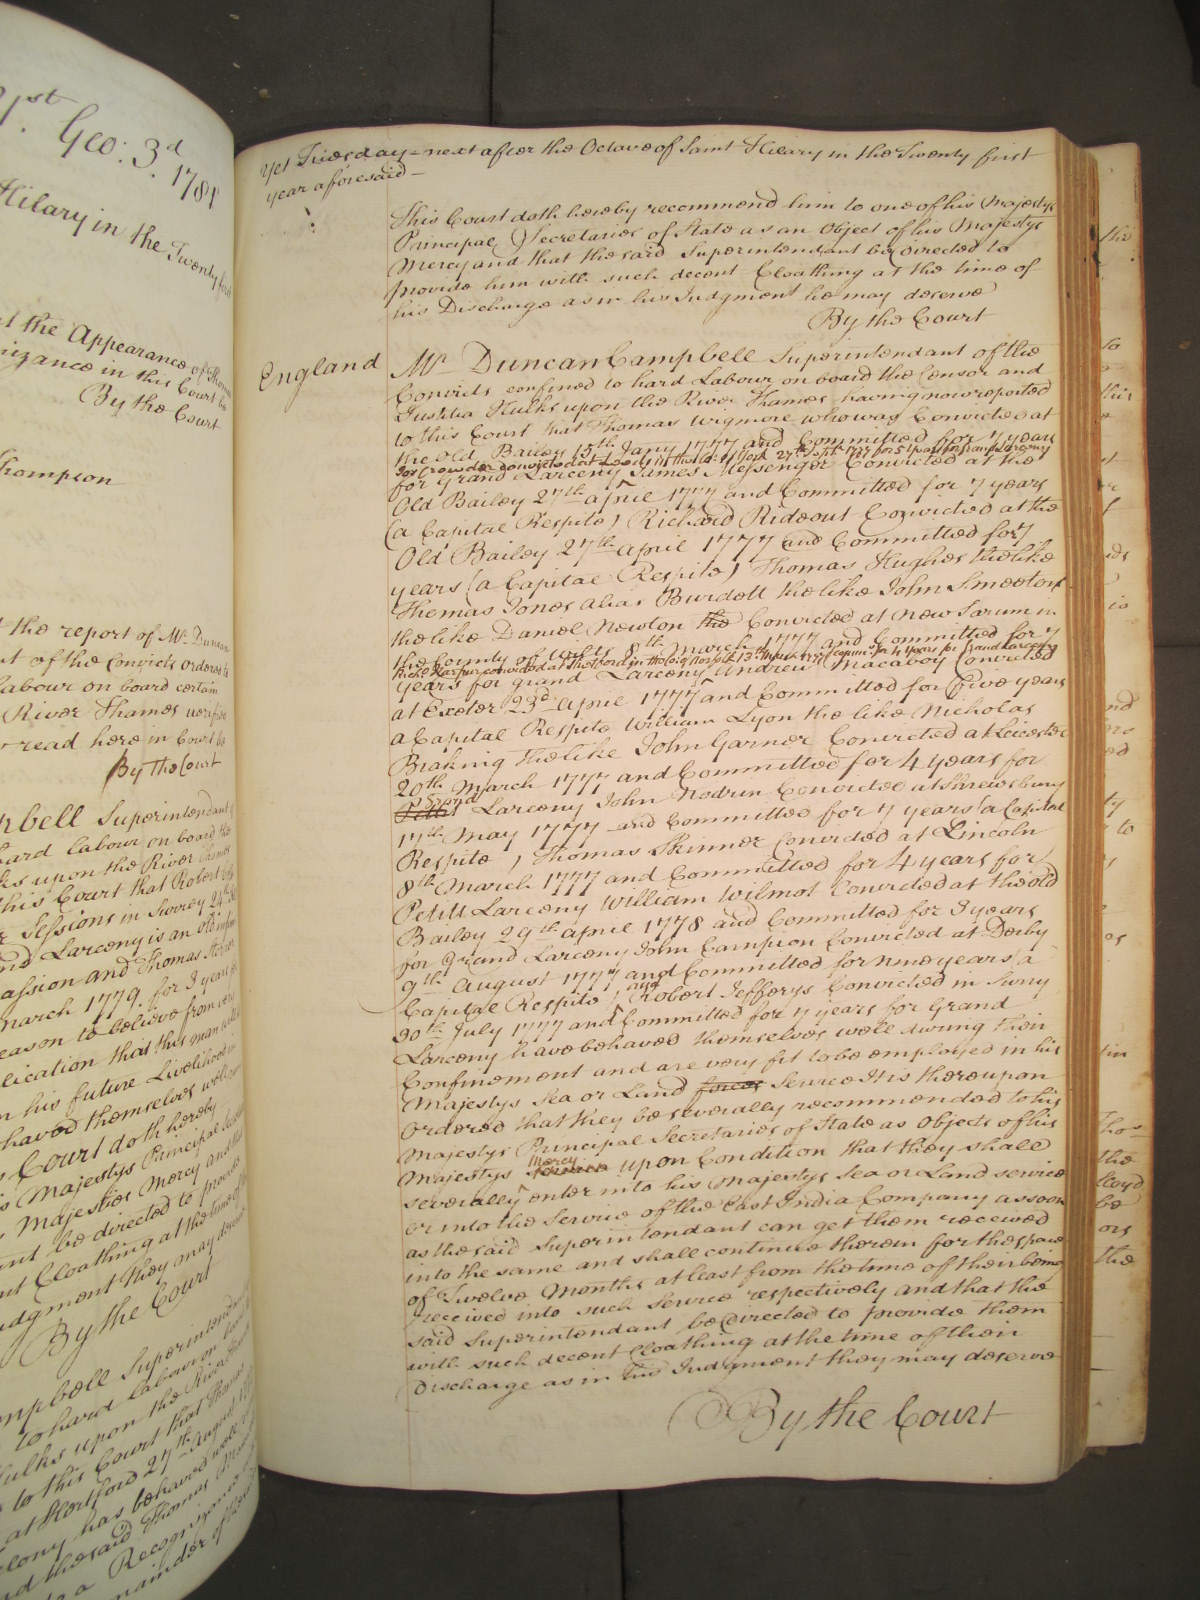 21st. Geo: 3d. 1781
Hilary in the Twenty first
the Appearance of Thom
nizance in this Court be
By the Court
Thompson
the report of Mr. Duncan
nt of the Convicts ordered to
Labour on board certain
River Thames verified
read here in Court
By the Court
pbell Superintendant
hard labour on board the
ks upon the River Thames
this Court that Robert
Sessions in Surrey 24th
nd Larceny is an old
and Thomas
March 1779. for 3 years
reason to believe from
lication that this man
n his future Livelihood
haved themselves well
Court doth hereby
Majestys Principal
Majesties Mercy and
nt be directed to provide
nt Cloathing at the time of
udgment they may deserve
By the Court
mpbell Superintendant
to hard Labour on board
Hulks upon the River Thames
to this Court that Thomas
at Hertford 27th August
elony has behaved well
nd the said Thomas
a Recognizance
mainder of
Yet Tuesday next after the Octave of Saint Hilary in the Twenty first
year aforesaid
This Court doth hereby recommend him to one of his Majestys
Principal Secretaries of State as an Object of his Majestys
Mercy and that the said Superintendant be directed to
provide him with such decent Cloathing at the time of
his Discharge as in his Judgment he may deserve
By the Court
England
Mr Duncan Campbell Superintendant of the
Convicts confined to hard Labour on board the Censor and
Justitia Hulks upon the River Thames having now reported
to this Court that Thomas Wigmore who was Convicted at
the Old Bailey 15th Jany 1777 and Committed for 7 years
Jos: Crowder convicted at Leeds in the Co: of York 27th Sept. 1777 for 5 years for grand Larceny
for grand Larceny James Messenger Convicted at the
Old Bailey 27th april 1777 and Committed for 7 years
(a Capital Respite) Richard Rideout Convicted at the
Old Bailey 27th april 1777 and Committed for 7
years (a Capital Respite) Thomas Hughes the like
Thomas Jones alias Burdett the like John Smeeton
the like Daniel Newton the Convicted at New Sarum in
the County of Wilts 8th March 1777 and Committed for 7
Richd. Harpur convicted at Thetford in the Co: of Norfolk 13th March 1777 for 4 years for grand Larceny
years for grand Larceny Andrew Macaboy Convicted
at Exeter 23d april 1777 and Committed for Five years
a Capital Respite William Lyon the like Nicholas
Braking the like John Garner Convicted at Leicester
20th March 1777 and Committed for 4 years for
Petit Grand Larceny John Nodrin Convicted at Shrewsbury
17th May 1777 and Committed for 7 years (a Capital
Respite) Thomas Skinner Convicted at Lincoln
8th March 1777 and Committed for 4 years for
Petitt Larceny William Wilmot Convicted at the old
Bailey 29th april 1778 and Committed for 3 years
for Grand Larceny John Campion Convicted at Derby
9th August 1777 and Committed for nine years (a
Capital Respite) and Robert Jefferys Convicted in Surry
30th July 1777 and Committed for 7 years for Grand
Larceny have behaved themselves well during their
Confinement and are very fit to be employed in his
Majestys Sea or Land forces Service It is thereupon
Ordered that they be severally recommended to his
Majestys Principal Secretaries of State as Objects of his
Majestys Mercy upon Condition that they shall
severally enter into his Majestys Sea or Land service
or into the Service of the East India Company as soon
as the said Superintendant can get them received
into the same and shall continue therein for the space
of Twelve Months at least from the time of their being
received into such Service respectively and that the
said Superintendant be directed to provide them
with such decent Cloathing at the time of their
Discharge as in his Judgment they may deserve
By the Court